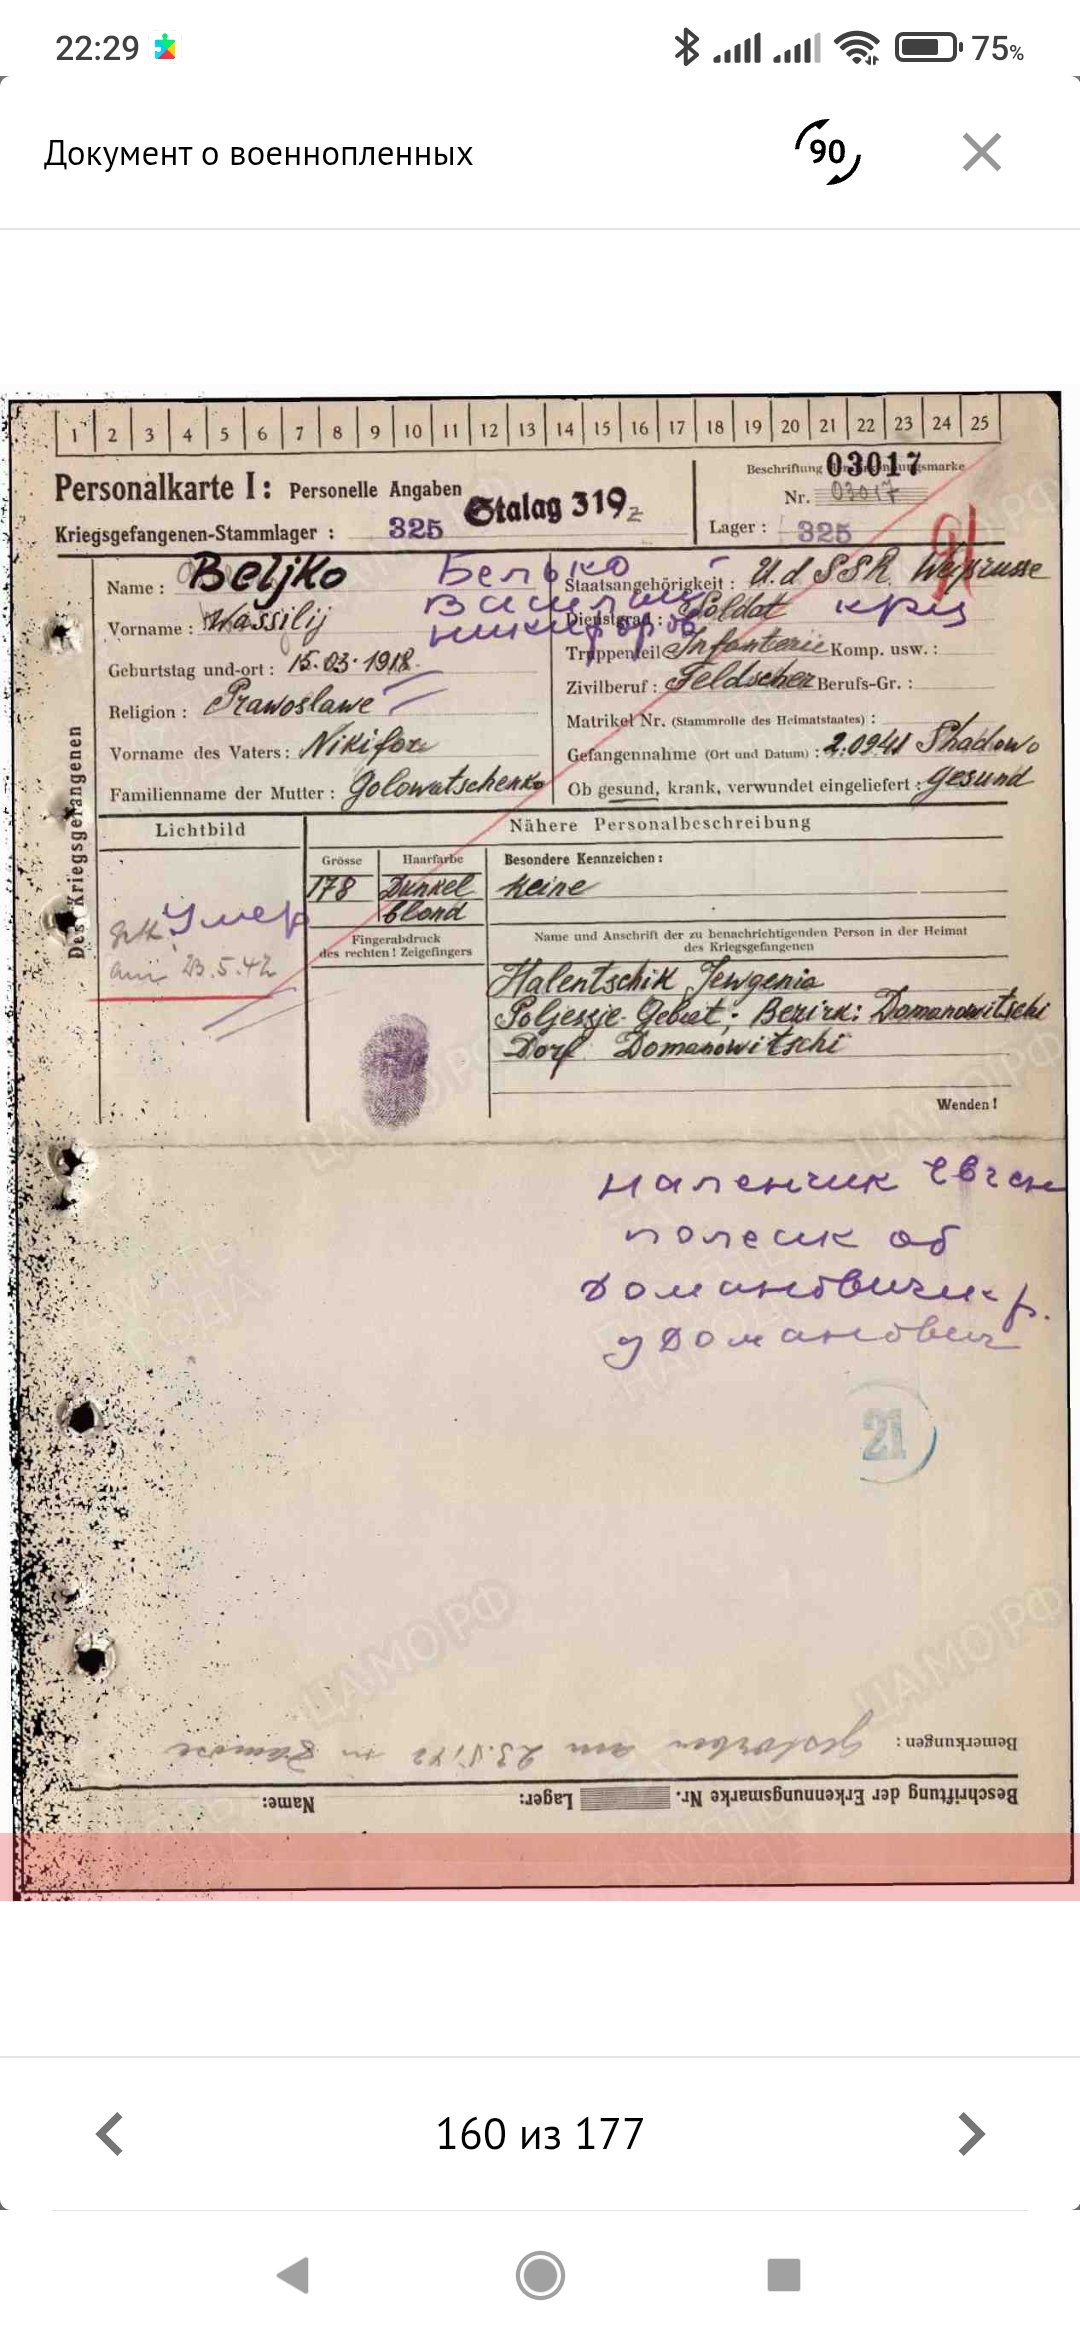 22:29 75%
Документ о военнопленных 90
1 2 3 4 5 6 7 8 9 10 11 12 13 14 15 16 17 18 19 20 21 22 23 24 25
Personalkarte I: Personelle Angaben
Stalag 319 z
Kriegsgefangenen-Stammlager : 325
Beschriftung der Erkennungsmarke
03017
Nr. 03017
Lager : 325
Des Kriegsgefangenen
Name : Beljko
Белько
Vorname : Wassilij
Василий
Никифоров
Geburtstag und-ort : 15.03.1918.
Religion : Prawoslawe
Vorname des Vaters : Nikifor
Familienname der Mutter : Golowatschenko
Staatsangehörigkeit : U.d.SSR. Weißrusse
Dienstgrad : Soldat крц
Truppenteil Infanterie Komp. usw. :
Zivilberuf : Feldscher Berufs-Gr. :
Matrikel Nr. (Stammrolle des Heimatstaates) :
Gefangennahme (Ort und Datum) : 2.0941 Shadowo
Ob gesund, krank, verwundet eingeliefert : gesund
Lichtbild
Nähere Personalbeschreibung
Grösse Haarfarbe Besondere Kennzeichen :
178 Dunkel blond keine
Умер
am 23.5.42
Fingerabdruck
des rechten ! Zeigefingers
Name und Anschrift der zu benachrichtigenden Person in der Heimat
des Kriegsgefangenen
Halentschik Jewgenia
Poljessje-Gebiet; Bezirk: Domanowitschi
Dorf Domanowitschi
Wenden !
наленчик Евген
полесик об
Домановичи-р.
Доманович
21
Bemerkungen : Gestorben am 23.5.42 in
Beschriftung der Erkennungsmarke Nr. Lager: Name:
ЦАМО РФ
160 из 177